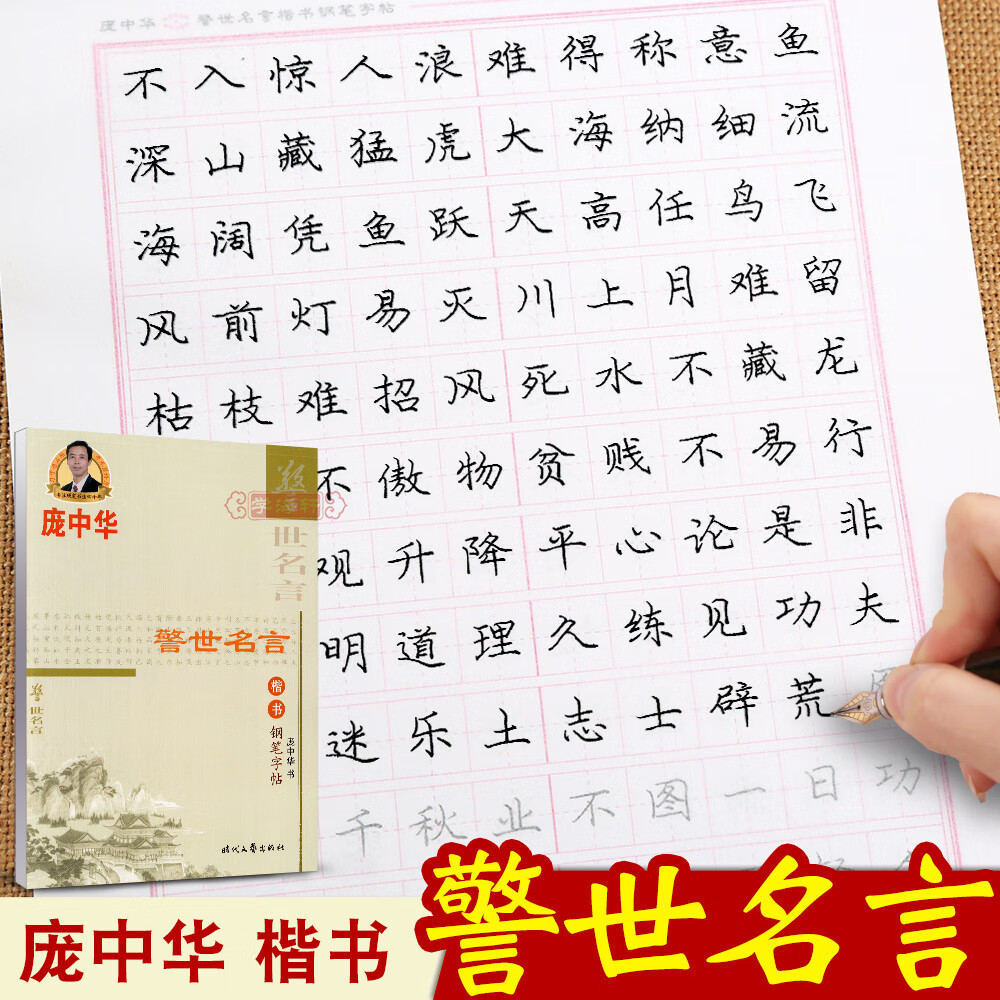 庞中华 警世名言楷书钢笔字帖
不入惊人浪难得称意鱼
深山藏猛虎大海纳细流
海阔凭鱼跃天高任鸟飞
风前灯易灭川上月难留
枯枝难招风死水不藏龙
不傲物贫贱不易行
观升降平心论是非
明道理久练见功夫
迷乐土志士辟荒
千秋业不图一日功
庞中华
警
世名言
学缘轩
警世名言
楷书
钢笔字帖
庞中华 书
警世名言
时代文艺出版社
庞中华 楷书
警世名言